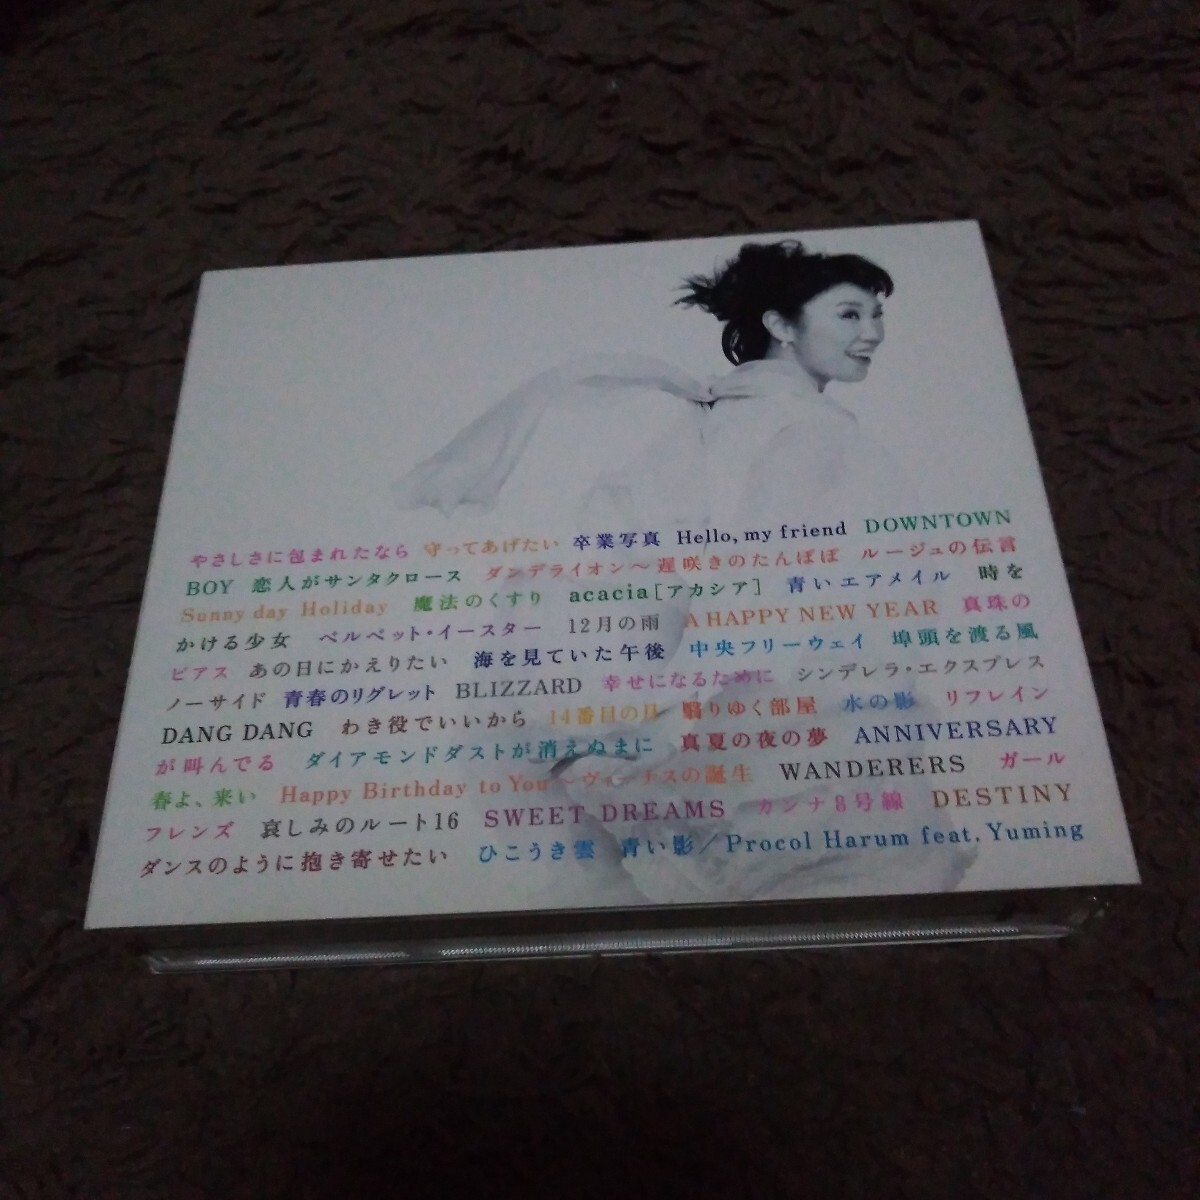 やさしさに包まれたなら 守ってあげたい 卒業写真 Hello, my friend DOWNTOWN
BOY 恋人がサンタクロース ダンデライオン〜遅咲きのたんぽぽ ルージュの伝言
Sunny day Holiday 魔法のくすり acacia[アカシア] 青いエアメイル 時を
かける少女 ベルベット・イースター 12月の雨 A HAPPY NEW YEAR 真珠の
ピアス あの日にかえりたい 海を見ていた午後 中央フリーウェイ 埠頭を渡る風
ノーサイド 青春のリグレット BLIZZARD 幸せになるために シンデレラ・エクスプレス
DANG DANG わき役でいいから 14番目の月 翳りゆく部屋 水の影 リフレイン
が叫んでる ダイアモンドダストが消えぬまに 真夏の夜の夢 ANNIVERSARY
春よ、来い Happy Birthday to You〜ヴィーナスの誕生 WANDERERS ガール
フレンズ 哀しみのルート16 SWEET DREAMS カンナ8号線 DESTINY
ダンスのように抱き寄せたい ひこうき雲 青い影／Procol Harum feat. Yuming